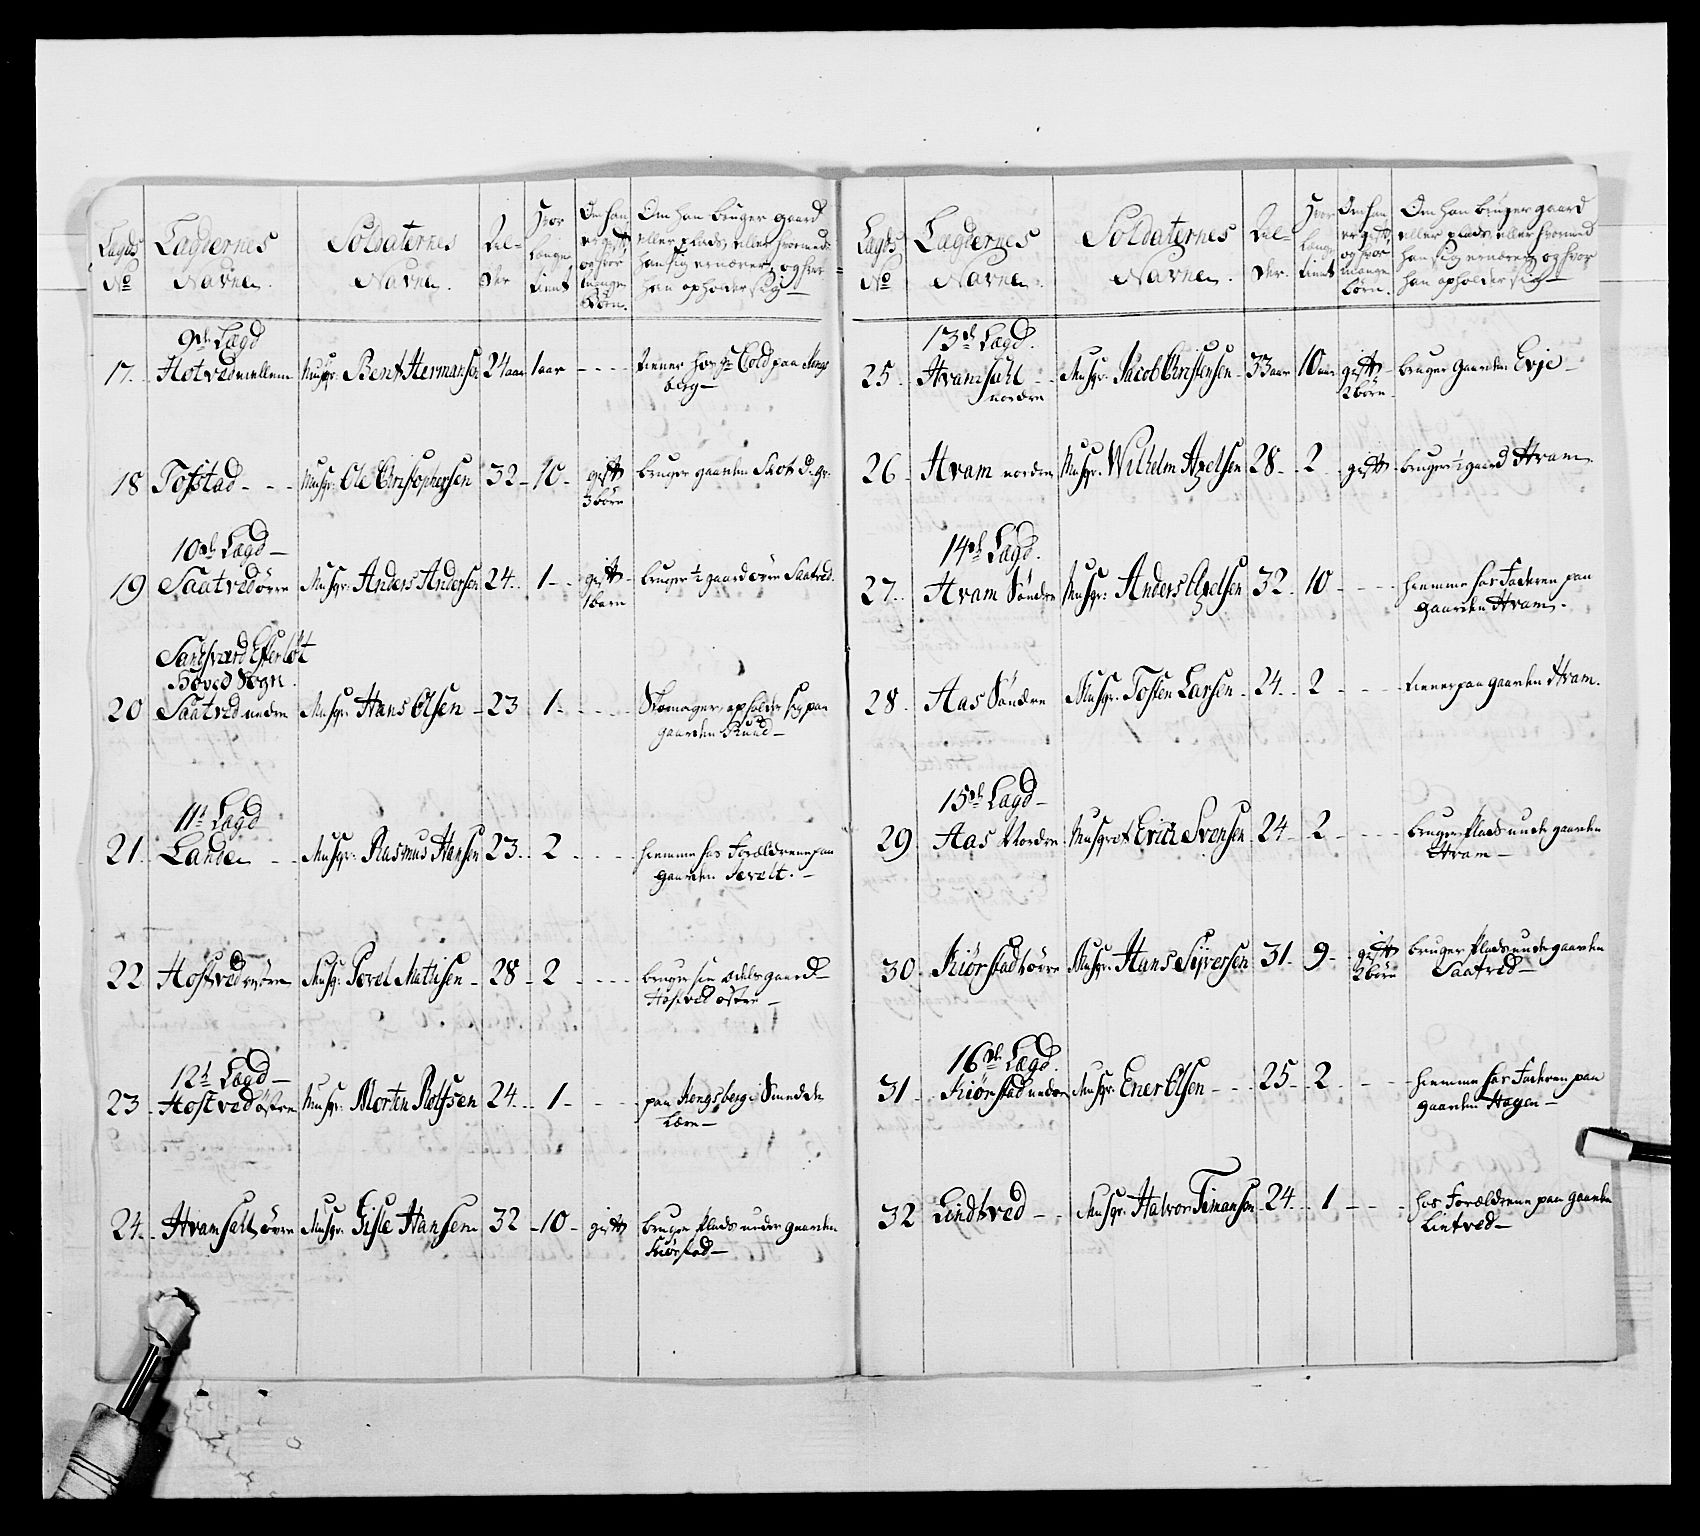 Lægds No
Lægdernes Navne.
Soldaternes Navne.
Alder
Hvor længe tient
Om han er gift, og hvor mange Børn.
Om han bruger gaard eller plads, eller hvormed han sig ernærer, og hvor han opholder sig
9de Lægd
17. Hotved mellem Musqr. Bent Hermansen 24 aar 1 aar - - - - tiener hos Hr Cold paa Kongsberg
18 Tofstad - - - Musqr. Ole Christophersen 32 - 10 - gift 3 børn bruger gaarden
10de Lægd
19 Saatvedøvre Musqr. Anders Andersen 24. 1 - - gift 1 barn bruger ½ gaard øvre Saatved.
Sandsværd Efterløt Hoved Sogn.
20 Saatved nedre Musqr. Hans Olsen - 23 1 - - - - Skomager, opholder sig paa gaarden Ruud
11te Lægd
21. Lande - - Musqr. Rasmus Hansen 23. 2 - - - - hiemme hos Forældrene paa gaarden
22 Hostved Musqr. Povel Mathisen - 28 - 2 - - - - bruger sin odelsgaard Hostved østre
12te Lægd
23 Hostved østre Musqr. Morten Rolfsen 24. - 1 - - - - paa Kongsberg i Smedde Lære
24. Hvamsahl øvre Musqr. Gisle Hansen 32 - 10 - gift bruger Plads under gaarden Kiørstad
Lægds No
Lægdernes Navne.
Soldaternes Navne.
Alder.
Hvor længe tient
Om han er gift, og hvor mange børn.
Om han bruger gaard eller plads, eller hvormed han sig ernærer, og hvor han opholder sig
13de Lægd.
25. Hvamsahl nordre Musqr. Jacob Christensen 33 aar 10 aar gift 2 børn bruger gaarden Evje
26. Hvam nordre Musqr. Wilhelm Axelsen 28 - 2 - gift bruger ½ gaard Hvam.
14de Lægd.
27. Hvam Søndre Musqr. Anders Axelsen 32. 10 - - - - hiemme hos Faderen paa gaarden Hvam.
28. Aas Søndre Musqr. Tosten Larsen 24. 2 - - - - tiener paa gaarden Hvam.
15de Lægd
29. Aas Nordre Musqret Erich Svensen 24 - 2 - - - - bruger Plads under gaarden Hvam
30. Kiørstad øvre Musqr. Hans Sÿversen 31 - 9 - gift 2 børn bruger Plads under gaarden Saatved
16de Lægd.
31 Kiørstad nedre Musqr. Ener Olsen - - - 25 - 2 - - - - hiemme hos Faderen paa gaarden Hagen
32 Lindtved - - Musqr. Halvor Timansen 24. 1 - - - - hos Forældrene paa gaarden Lintved